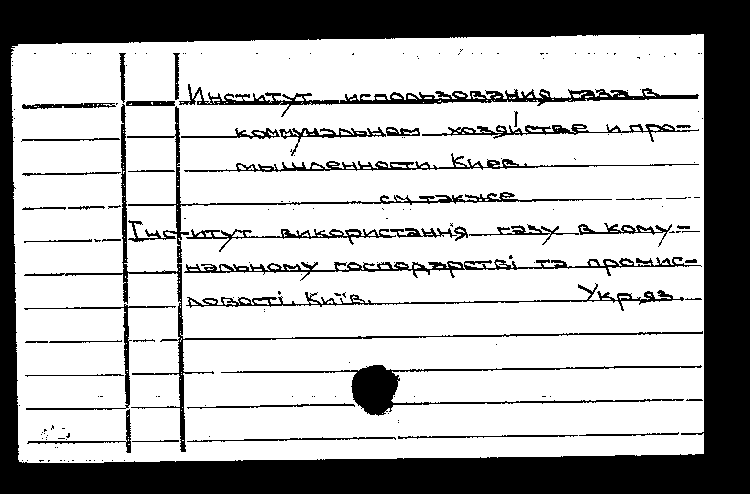 Институт использования газа в
коммунальном хозяйстве и про=
мышленности. Киев.
см также
Інститут використання газу в кому=
нальному господарстві та промис=
ловості. Київ. Укр.яз.